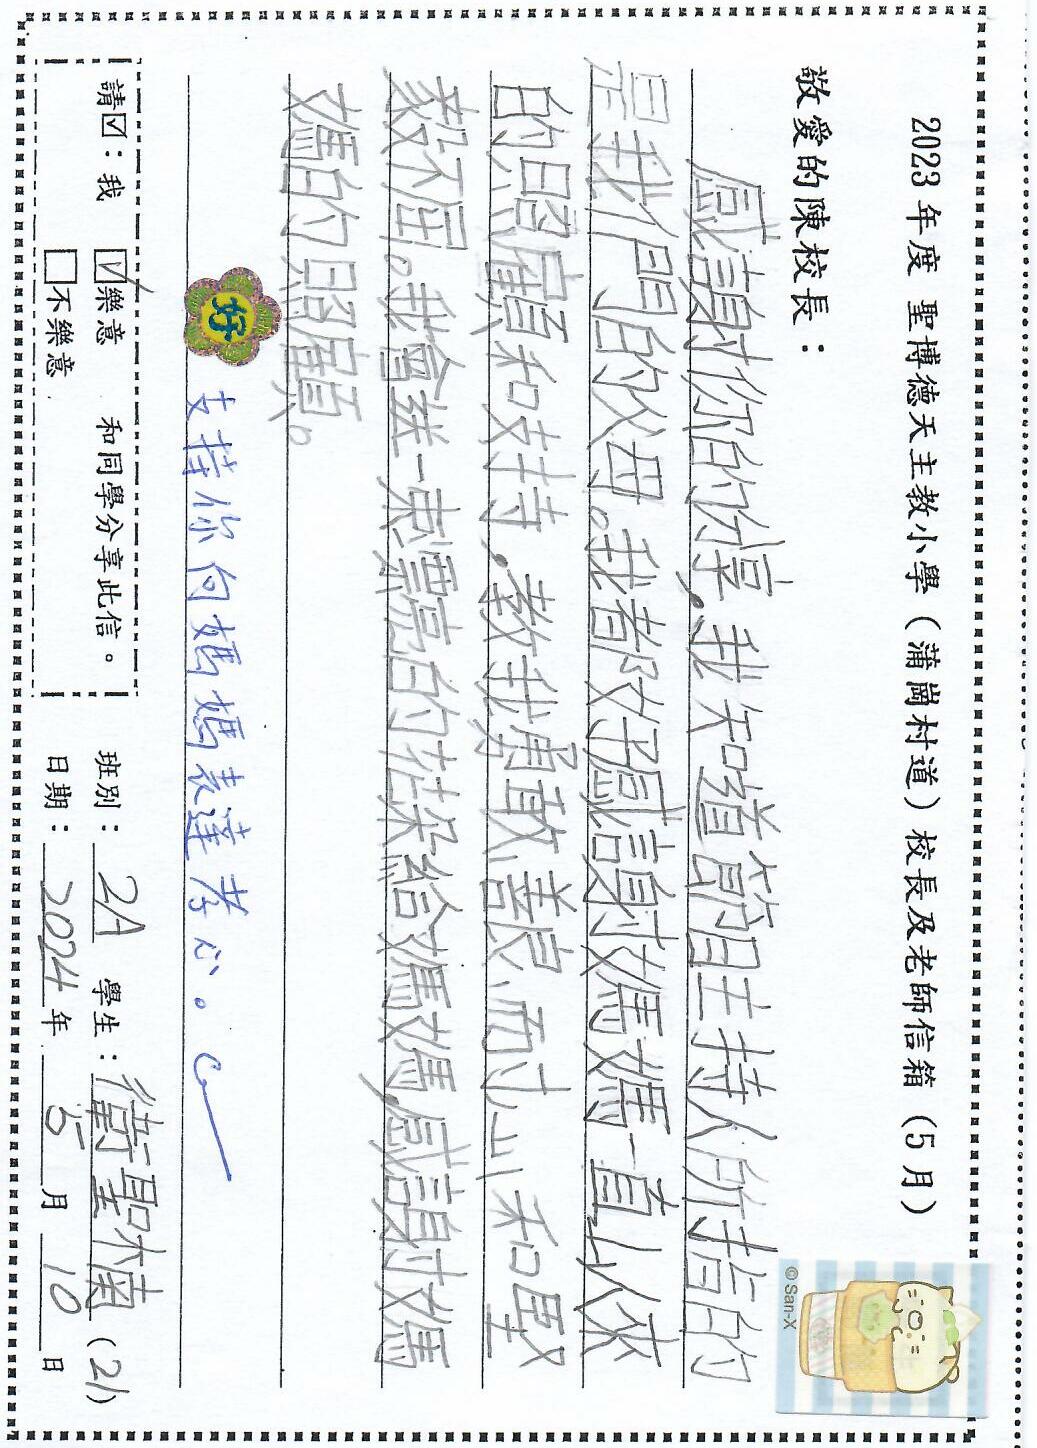 2023 年度 聖博德天主教小學（蒲崗村道）校長及老師信箱（5月）
© San-X
敬愛的陳校長：
感謝你的信，我知道節目主持人所指的
是我們的父母。我都好感謝媽媽一直以來
的照顧和支持，教我勇敢、善良、耐心和堅
毅不屈。我會送一束漂亮的花朵給媽媽，感謝媽
媽的照顧。
好
支持你向媽媽表達孝心。
請☑：我 ☑樂意 和同學分享此信。
□不樂意
班別：2A 學生：衛聖楠（21）
日期：2024年5月10日